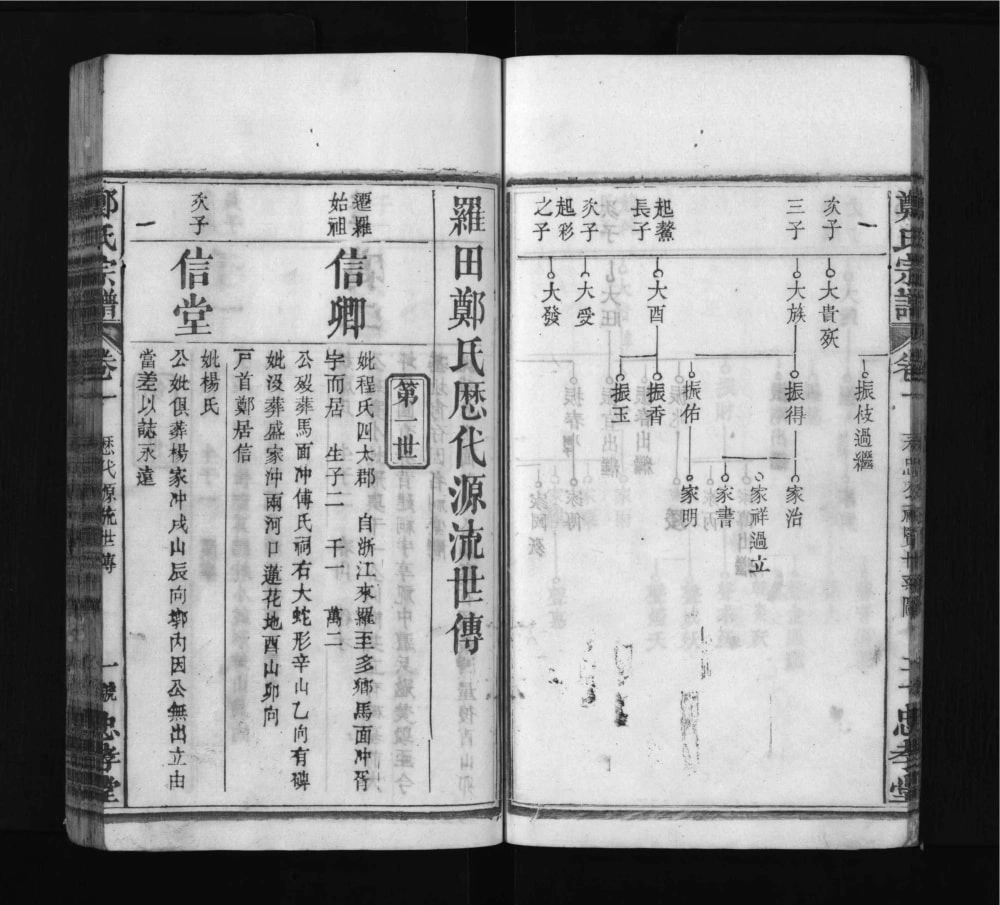 鄭氏宗譜
卷一
二
忠孝堂
次子
大貴殀
三子
大族
振伎過繼
振得
家治
家祥過立
家書
振佑
家明
起鰲
長子
大酉
振香
振玉
次子
大受
起彩
之子
大發
羅田鄭氏歴代源流世傳
第一世
遷羅
始祖
信卿
妣程氏四太郡 自浙江來羅至多鄉馬面冲胥
宇而居 生子二 千一 萬二
公歿葬馬面冲傅氏祠右大蛇形辛山乙向有碑
妣沒葬盛家沖兩河口蓮花地酉山卯向
戸首鄭居信
次子
信堂
妣楊氏
公妣俱葬楊家冲戌山辰向塝內因公無出立由
當差以誌永遠
鄭氏宗譜
卷一
歷代源流世傳
一號
忠孝堂